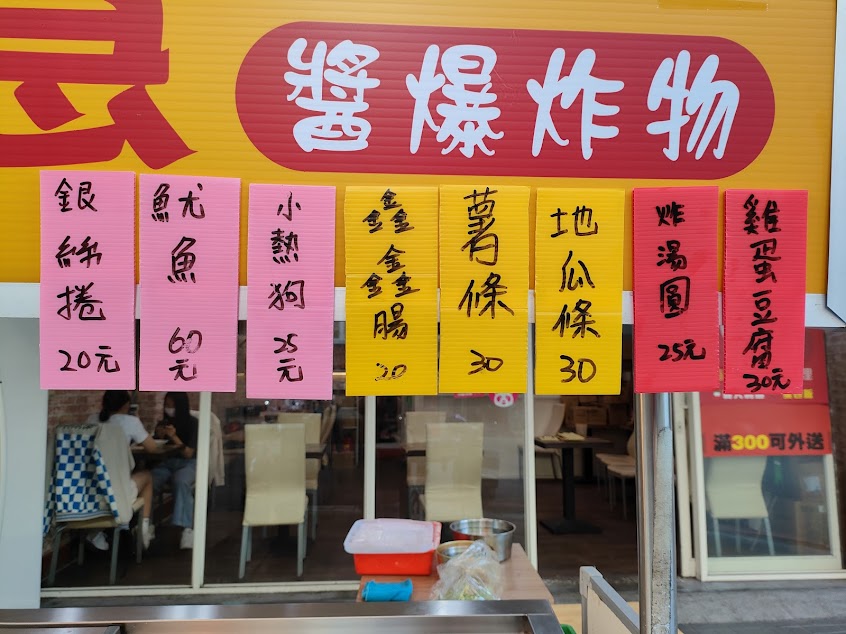 醬爆炸物
銀絲捲 20元
魷魚 60元
小熱狗 25元
鑫鑫腸 20
薯條 30
地瓜條 30
炸湯圓 25元
雞蛋豆腐 30元
滿300可外送